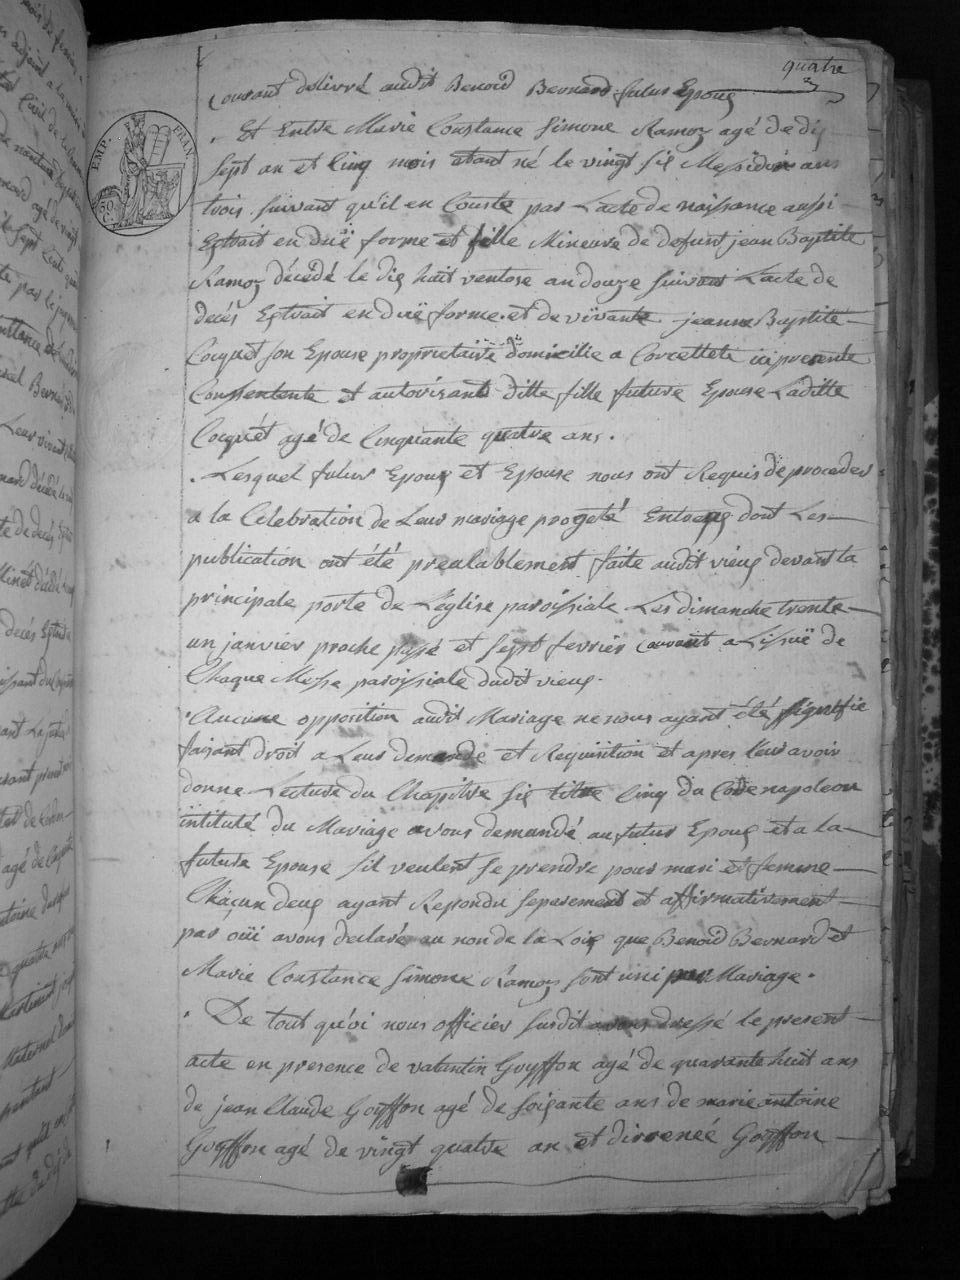 quatre
Courant délivré audit Benoid Bernard futur Epoux
Et Entre Marie Constance Simone Ramoz agé de dix
sept an et Cinq mois etant né le vingt six Messidor ans
trois suivant qu'il en Conste par L'acte de naissance aussi
Extrait en duë forme et fille Mineure de defunt jean Baptiste
Ramoz décédé le dix huit ventose an douze suivant L'acte de
decés Extrait en duë forme et de vivante jeanne Baptiste
Cocquet son Epouse proprietaire domicilie a Corcellete ici presente
Consentente et autorisant ditte fille future Epouse Laditte
Cocquét agé de Cinquante quatre ans.
Lesquel futur Epoux et Epouse nous ont Requis de proceder
a la Célébration de Leur mariage progeté Entreux dont Les
publication ont été prealablement faite audit vieux devant la
principale porte de L'eglise paroissiale Les dimanche trente
un janvier proche passé et sept fevrier courant a Lissuë de
Chaque Messe paroissiale dudit vieux.
Aucune opposition audit Mariage ne nous ayant été signifie
faisant droit a Leur demande et Requisition et apres leur avoir
donne Lecture du Chapitre six titre Cinq du Code napoleon
intitulé du Mariage avons demandé au futur Epoux et a la
future Epouse sil veulent se prendre pour mari et femme
Chaçun deux ayant Repondu separement et affirmativement
par oüi avons declaré au non de la Loix que Benoid Bernard et
Marie Constance Simone Ramoz sont uni par Mariage.
De tout qu'oi nous officier susdit avons dressé le present
acte en presence de valentin Goyffon agé de quarante huit ans
de jean Claude Goyffon agé de soixante ans de marie antoine
Goyffon agé de vingt quatre an et dirreneé Goyffon
EMP. FRAN.
50
C.